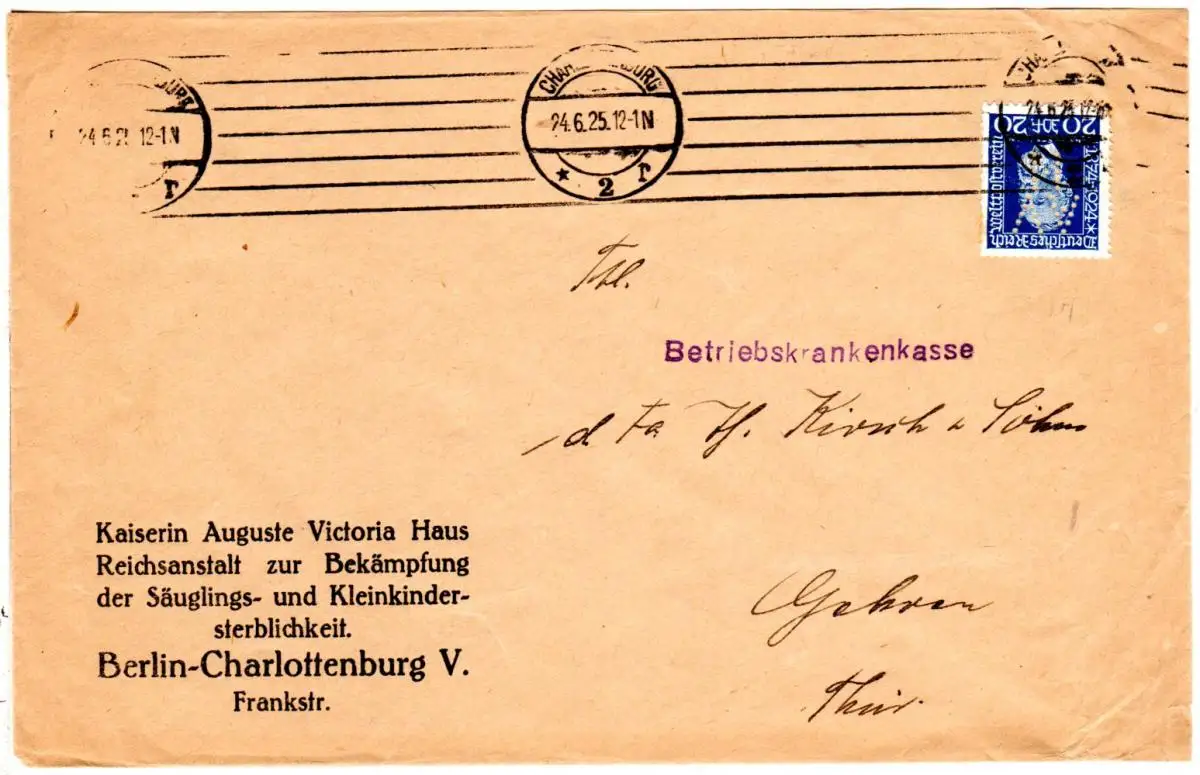 CHARLOTTENBURG
24.6.25.12-1N
* 2 r
24.6.25 12-1N
r
20 Pf. 20
1874-1924*
Weltpostverein
Deutsches Reich
Betriebskrankenkasse
d Fa Th. Kirsch & Söhne
Kaiserin Auguste Victoria Haus
Reichsanstalt zur Bekämpfung
der Säuglings- und Kleinkinder-
sterblichkeit.
Berlin-Charlottenburg V.
Frankstr.
Gehren
Thür.